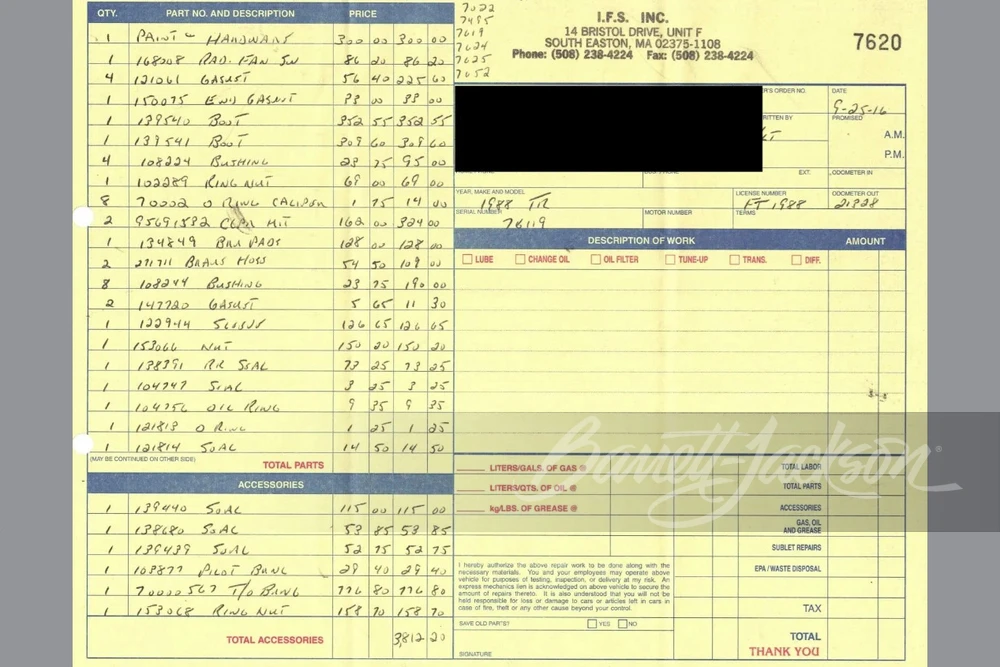 QTY. PART NO. AND DESCRIPTION PRICE
1 PAINT - HARDWARE 300 00 300 00
1 168008 RAD. FAN SW 86 20 86 20
4 121061 GASKET 56 40 225 60
1 150075 END GASKET 33 00 33 00
1 139540 BOOT 352 55 352 55
1 139541 BOOT 309 60 309 60
4 108224 BUSHING 23 75 95 00
1 102289 RING NUT 69 00 69 00
8 70002 O RING CALIPER 1 75 14 00
2 95691532 KIT 162 00 324 00
1 134849 PADS 128 00 128 00
2 HOSE 54 50 109 00
8 108244 BUSHING 23 75 190 00
2 147720 GASKET 5 65 11 30
1 122944 126 65 126 65
1 153066 NUT 150 20 150 20
1 138391 RR SEAL 73 25 73 25
1 104747 SEAL 3 25 3 25
1 104756 OIL RING 9 35 9 35
1 121813 O RING 1 25 1 25
1 121814 SEAL 14 50 14 50
(MAY BE CONTINUED ON OTHER SIDE)
TOTAL PARTS
ACCESSORIES
1 139440 SEAL 115 00 115 00
1 138680 SEAL 53 85 53 85
1 139439 SEAL 52 75 52 75
1 103877 PILOT BRNG 29 40 29 40
1 70000567 T/O BRNG 776 80 776 80
1 153068 RING NUT 158 70 158 70
TOTAL ACCESSORIES 3,812 20
7022
7495
7619
7624
7625
7652
I.F.S. INC.
14 BRISTOL DRIVE, UNIT F
SOUTH EASTON, MA 02375-1108
Phone: (508) 238-4224 Fax: (508) 238-4224
7620
'S ORDER NO.
DATE
9-25-16
RITTEN BY
PROMISED
A.M.
P.M.
EXT.
ODOMETER IN
YEAR, MAKE AND MODEL
1988 TR
LICENSE NUMBER
FT 1988
ODOMETER OUT
21328
SERIAL NUMBER
76119
MOTOR NUMBER
TERMS
DESCRIPTION OF WORK AMOUNT
LUBE CHANGE OIL OIL FILTER TUNE-UP TRANS. DIFF.
Barrett-Jackson®
LITERS/GALS. OF GAS @
LITERS/QTS. OF OIL @
kg/LBS. OF GREASE @
TOTAL LABOR
TOTAL PARTS
ACCESSORIES
GAS, OIL
AND GREASE
SUBLET REPAIRS
EPA / WASTE DISPOSAL
TAX
TOTAL
THANK YOU
I hereby authorize the above repair work to be done along with the
necessary materials. You and your employees may operate above
vehicle for purposes of testing, inspection, or delivery at my risk. An
express mechanics lien is acknowledged on above vehicle to secure the
amount of repairs thereto. It is also understood that you will not be
held responsible for loss or damage to cars or articles left in cars in
case of fire, theft or any other cause beyond your control.
SAVE OLD PARTS? YES NO
SIGNATURE